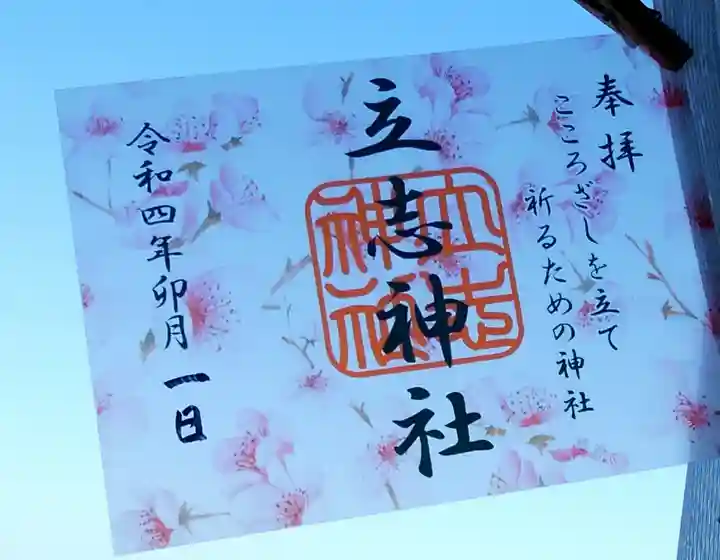 奉拝
こころざしを立て
祈るための神社
立志神社
立志神社
令和四年卯月一日